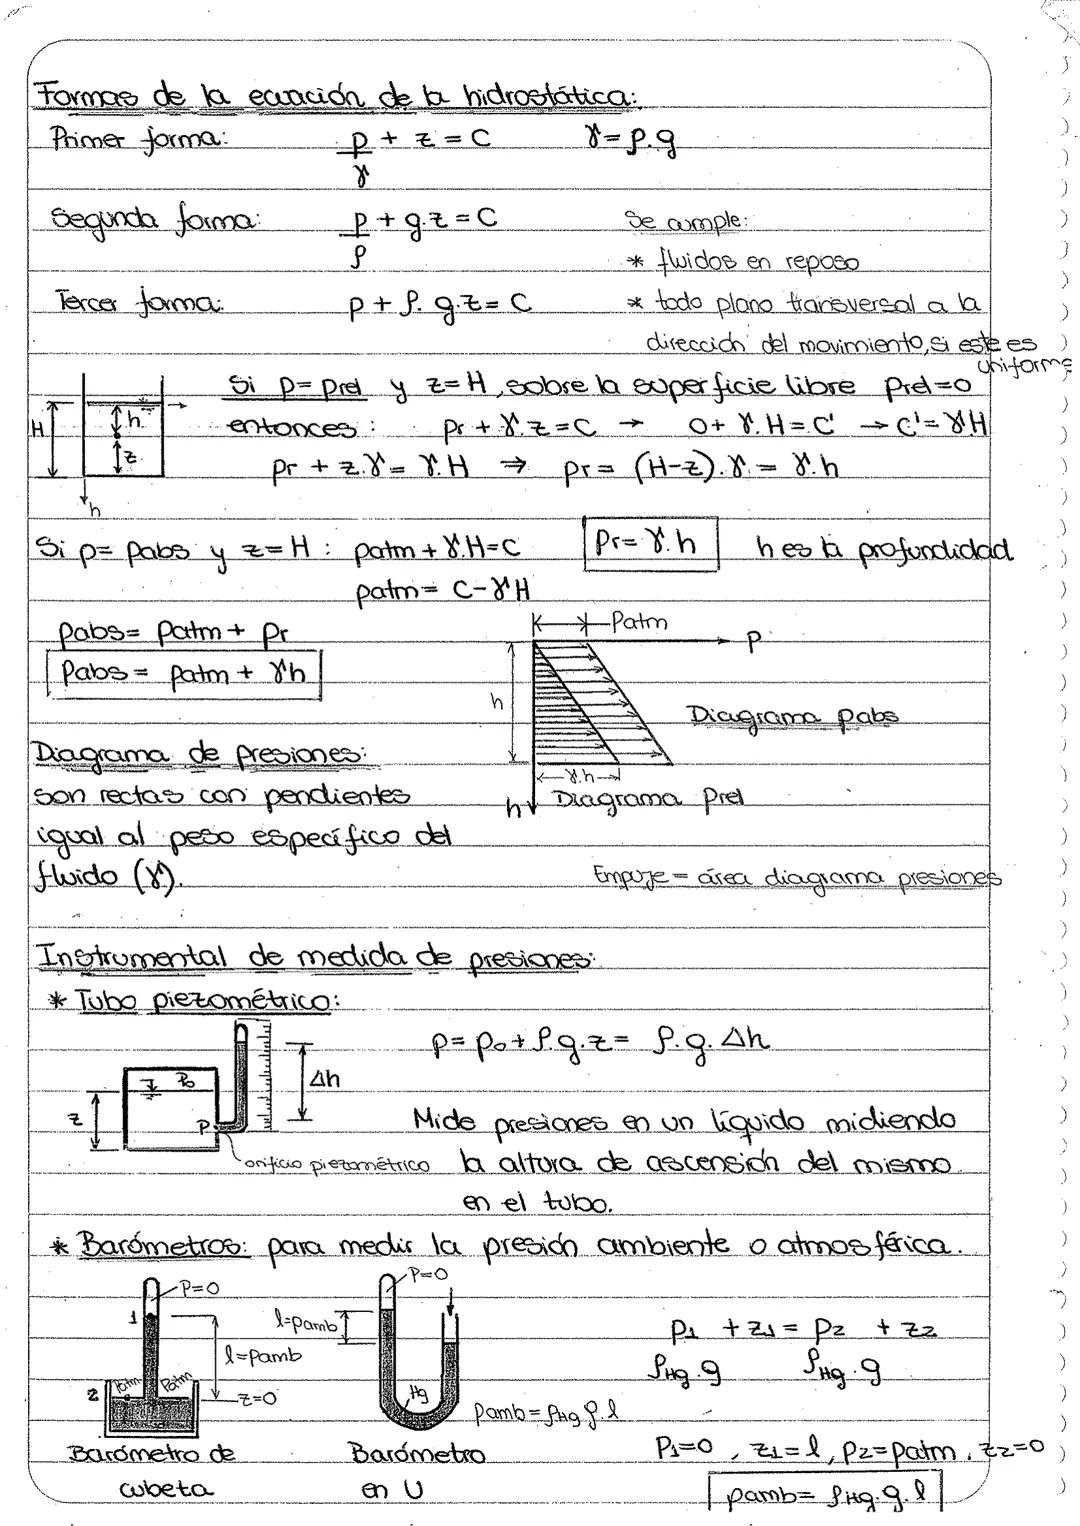 Formas de la ecuación de la hidrostática:
Primer forma: p/γ + z = C γ = ρ.g
Segunda forma: p/ρ + g.z = C Se cumple:
* fluidos en reposo
Tercer forma: p + ρ.g.z = C * todo plano transversal a la
dirección del movimiento, si este es
uniforme
Si p = prel y z = H, sobre la superficie libre prel = 0
entonces: pr + γ.z = C → 0 + γ.H = C' → C' = γH
pr + z.γ = γ.H ⇒ pr = (H-z).γ = γ.h
H
h
z
h
Si p = pabs y z = H: patm + γ.H = C pr = γ.h h es la profundidad
patm = C - γH
pabs = patm + pr
pabs = patm + γh
Patm
P
h
Diagrama pabs
γ.h
h Diagrama prel
Diagrama de presiones:
son rectas con pendientes
igual al peso específico del
fluido (γ).
Empuje = área diagrama presiones
Instrumental de medida de presiones:
* Tubo piezométrico:
p = po + ρ.g.z = ρ.g.Δh
Po
Δh
z
P
orificio piezométrico
Mide presiones en un líquido midiendo
la altura de ascensión del mismo
en el tubo.
* Barómetros: para medir la presión ambiente o atmosférica.
P=0
1
l=pamb
2 Patm Patm
z=0
Barómetro de
cubeta
P=0
l=pamb
Hg
pamb = ρHg g.l
Barómetro
en U
p1/ρHg.g + z1 = p2/ρHg.g + z2
P1=0, z1=l, p2=patm, z2=0
pamb = ρHg.g.l